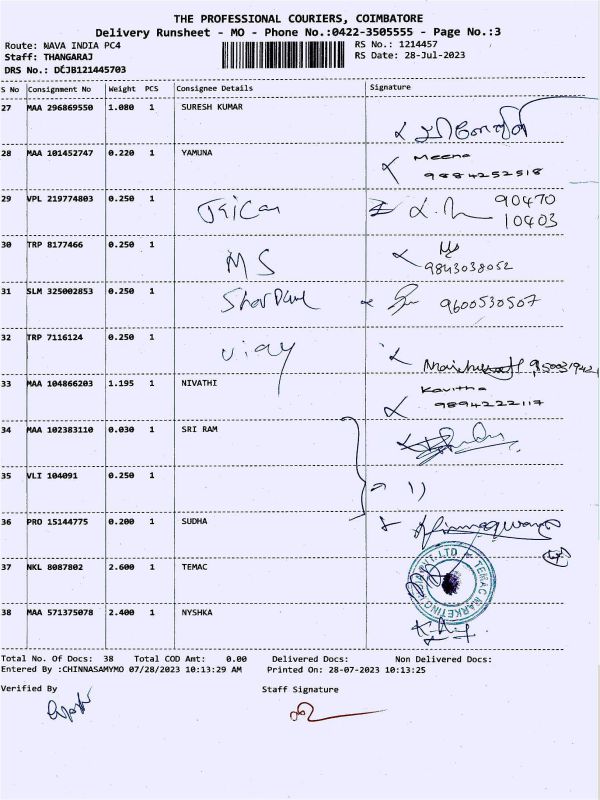 THE PROFESSIONAL COURIERS, COIMBATORE
Delivery Runsheet - MO - Phone No.:0422-3505555 - Page No.:3
Route: NAVA INDIA PC4 RS No.: 1214457
Staff: THANGARAJ RS Date: 28-Jul-2023
DRS No.: DCJB121445703
S No Consignment No Weight PCS Consignee Details Signature
27 MAA 296869550 1.080 1 SURESH KUMAR
28 MAA 101452747 0.220 1 YAMUNA Meena
9884252518
29 VPL 219774803 0.250 1 90470
10403
30 TRP 8177466 0.250 1 MS
9843038052
31 SLM 325002853 0.250 1 9600530507
32 TRP 7116124 0.250 1 Vijay
33 MAA 104866203 1.195 1 NIVATHI Kavitha
9894222117
34 MAA 102383110 0.030 1 SRI RAM
35 VLI 104091 0.250 1
36 PRO 15144775 0.200 1 SUDHA
37 NKL 8087802 2.600 1 TEMAC
TEMAC MARKETING PVT. LTD
38 MAA 571375078 2.400 1 NYSHKA
Total No. Of Docs: 38 Total COD Amt: 0.00 Delivered Docs: Non Delivered Docs:
Entered By :CHINNASAMYMO 07/28/2023 10:13:29 AM Printed On: 28-07-2023 10:13:25
Verified By Staff Signature